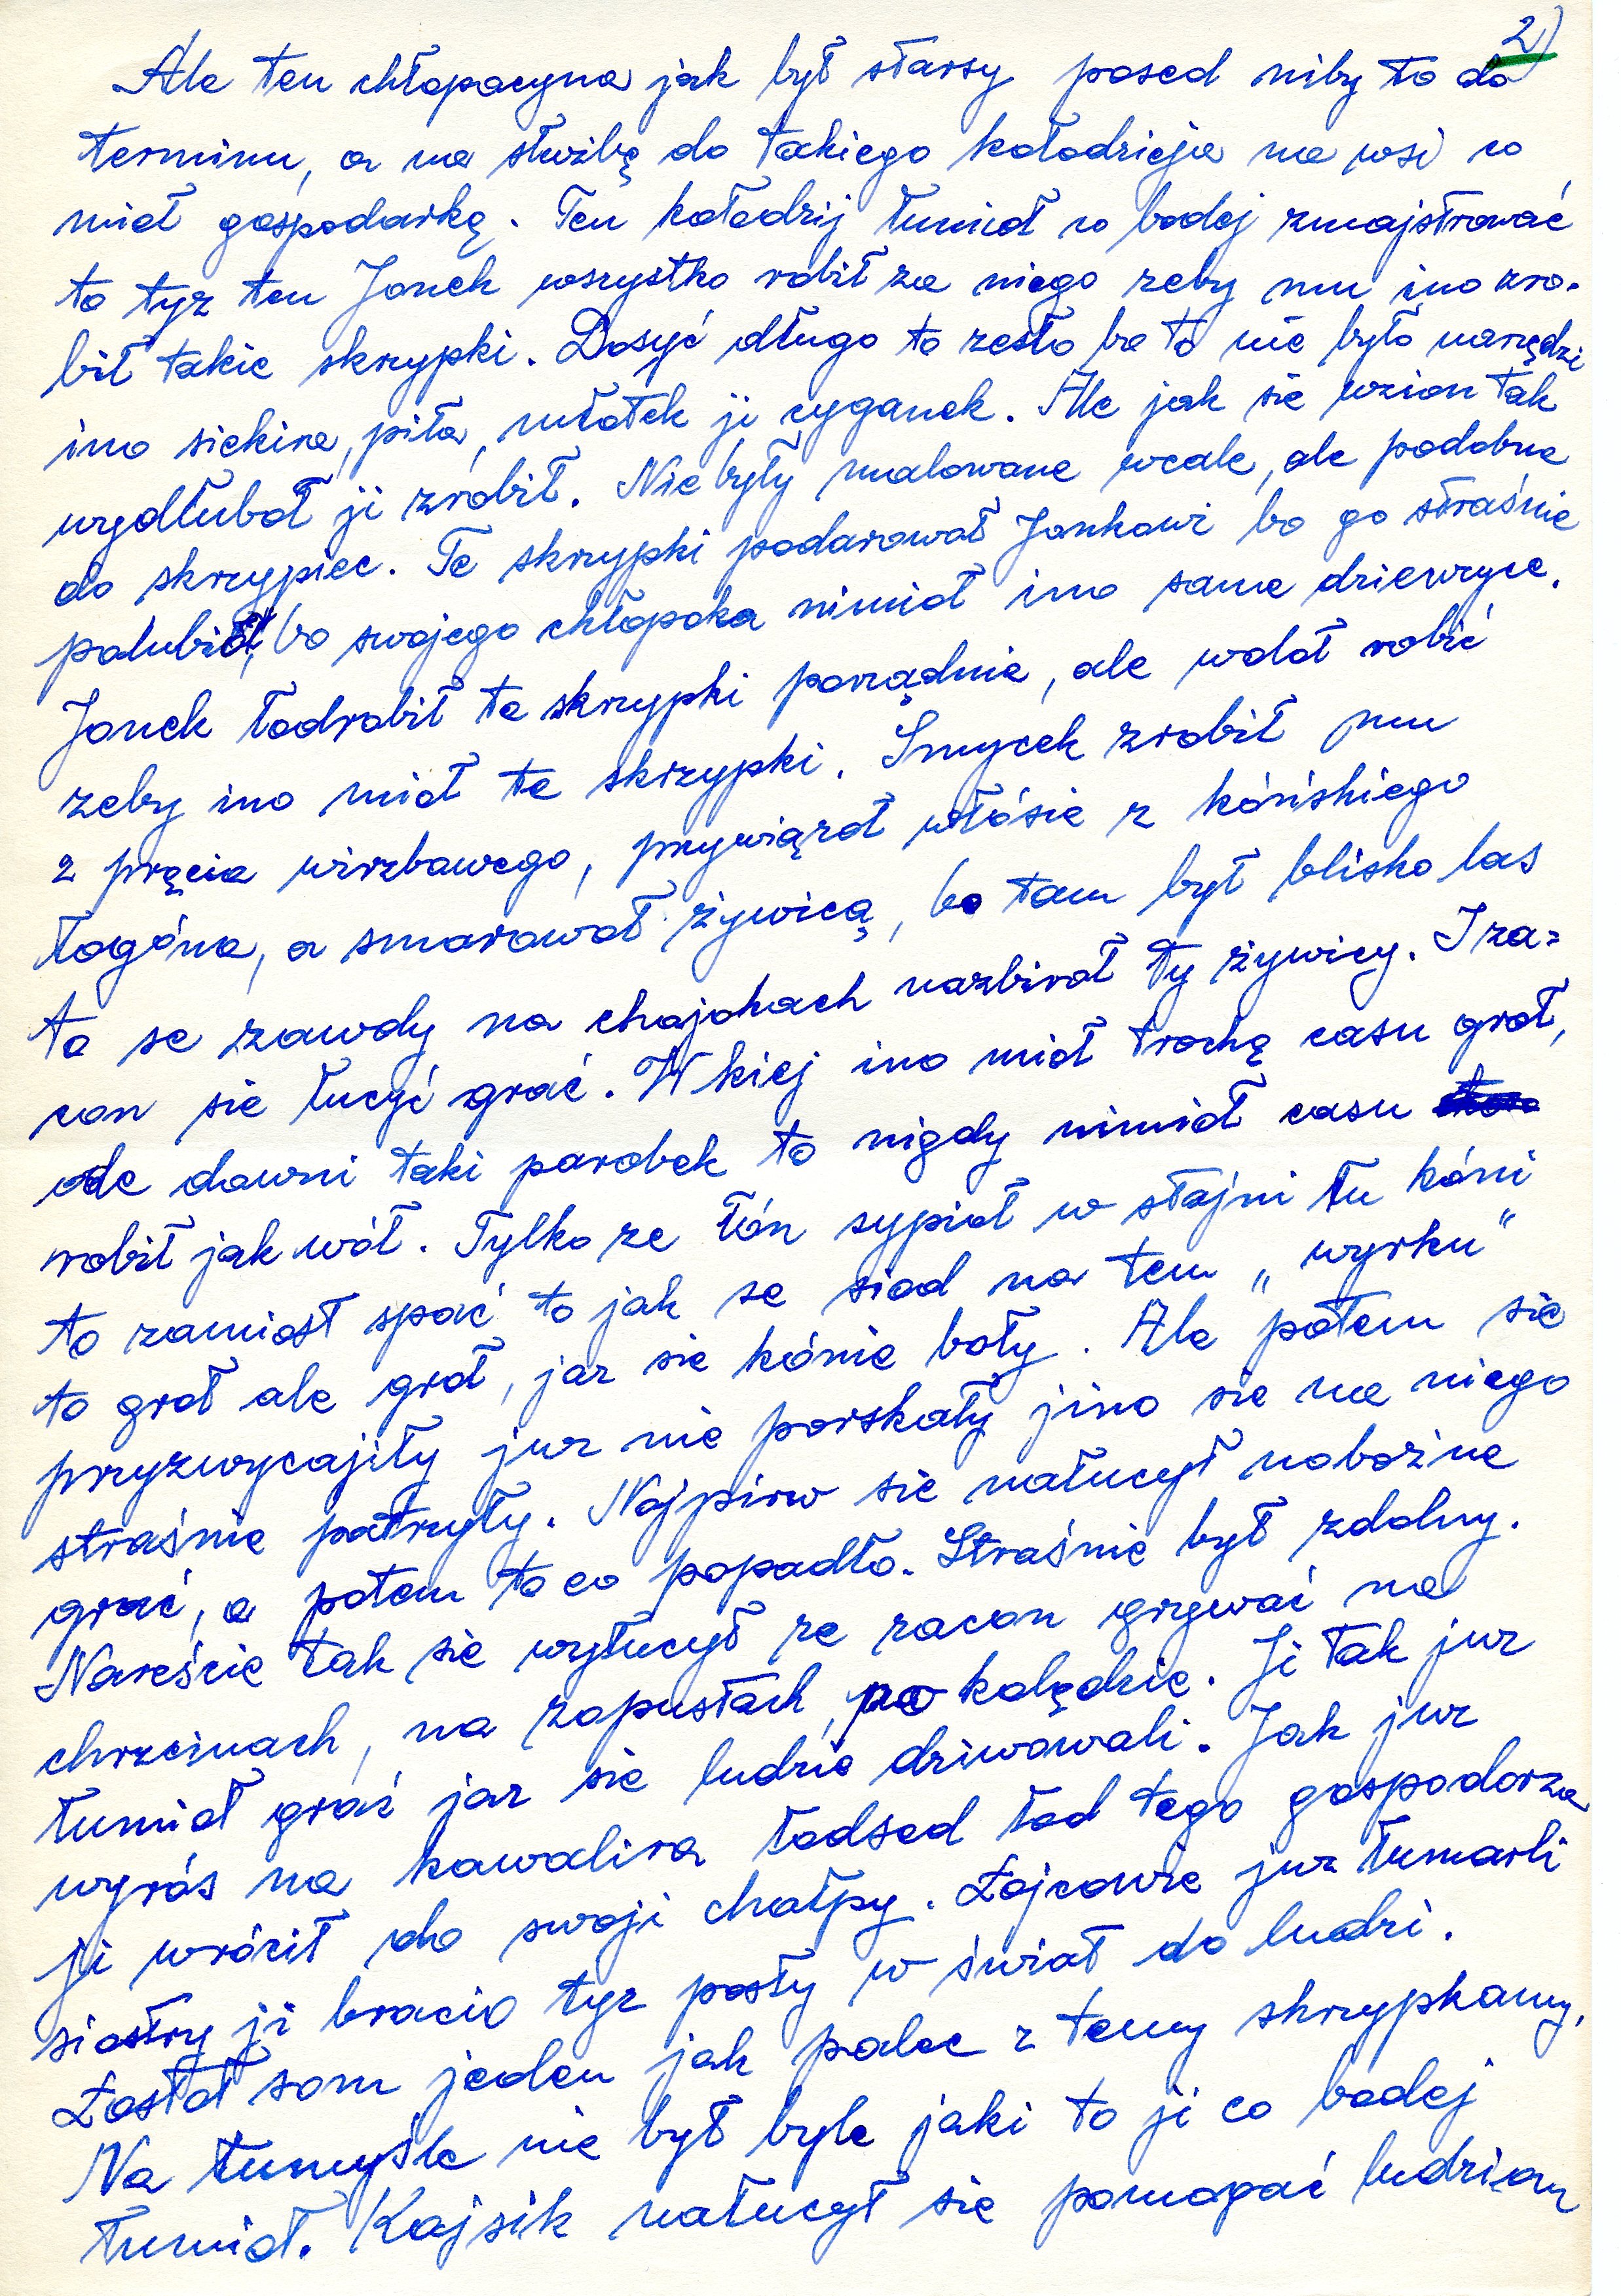 2)
Ale ten chłopocyna jak był starsy posed niby to do
terminu, a na służbę do takiego kołodzieja na wsi co
mioł gospodarkę. Ten kołodzij łumioł co bodej zmajstrować
to tyz ten Jonek wszystko robił za niego zeby mu ino zro-
bił takie skrzypki. Dosyć długo to zesło bo to nie było narzędzi
ino siekira, piła, młotek ji cyganek. Ale jak sie wzion tak
wydłuboł ji zrobił. Nie były malowane wcale, ale podobne
do skrzypiec. Te skrzypki podarowoł Jonkowi bo go straśnie
polubioł, bo swojego chłopoka nimioł ino same dziewzyce.
Jonek łodrobił te skrzypki porządnie, ale woloł robić
zeby ino mioł te skrzypki. Smycek zrobił mu
z pręcia wirzbowego, przywiązoł włósie z kóńskiego
łogóna, a smarowoł żywicą, bo tam był blisko las
to se zawdy na chojokach nazbiroł ty żywicy. I za-
con sie łucyć grać. W kiej ino mioł trochę casu groł,
ale downi taki parobek to nigdy nimioł casu
robił jak wół. Tylko ze łón sypioł w stajni łu kóni
to zamiost spać to jak se siod na tem „wyrku”
to groł ale groł, jaz sie kónie boły. Ale potem sie
przyzwycajiły juz nie porskały jino sie na niego
straśnie patrzyły. Nojpirw sie nałucył nobożne
grać, a potem to co popadło. Straśnie był zdolny.
Nareście tak sie wyłucył ze zacon grywać na
chrzcinach, na zopustach, po kolędzie. Ji tak juz
łumioł grać jaz sie ludzie dziwowali. Jak juz
wyrós na kawalira łodsed łod tego gospodorza
ji wrócił do swoji chałpy. Łojcowie juz łumarli
siostry ji bracio tyz posły w świat do ludzi.
Łostoł som jeden jak palec z temy skrzypkamy.
Na łumyśle nie był byle jaki to ji co bodej
łumioł. Kajsik nałucył się pomogać ludziom